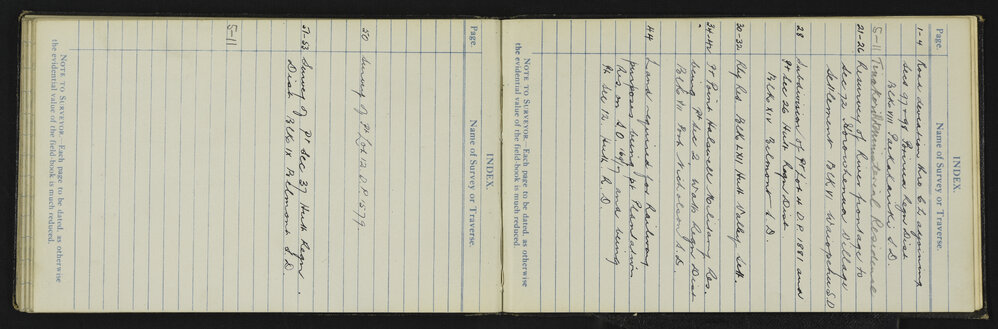 INDEX.
Page.
Name of Survey or Traverse.
1-4 Road deviation thro' C.L. adjoining
Secs 97-98 Pairua Regn Dist
Blk VIII Paekakariki S.D.
5-11 Tinakori Ministerial Residence
21-26 Resurvey of River frontage to
Sec 32 Horowhenua Village
Settlement Blk VI Waiopehu S.D
28 Subdivision of Pt Lot H D.P. 1881 and
Pt Sec 26 Hutt Regn Dist.
Blk XIV Belmont S.D.
30-32 Rly Res Blk LXVI Hutt Valley Sett.
34-42 Pt Point Halswell Military Res.
being Pt Sec 2 Watts Regn Dist
Blk VII Port Nicholson S.D.
44 Land required for Railway
purposes being pt Plantation
Res on S.O. and being
Pt Sec 12 Hutt R.D.
NOTE TO SURVEYOR.—Each page to be dated, as otherwise
the evidential value of the field-book is much reduced.
INDEX.
Page.
Name of Survey or Traverse.
50 Survey of Pt Lot 12 D.P. 579.
51-53 Survey of Pt Sec 37 Hutt Regn.
Dist Blk IX Belmont S D
5-11
NOTE TO SURVEYOR.—Each page to be dated, as otherwise
the evidential value of the field-book is much reduced.